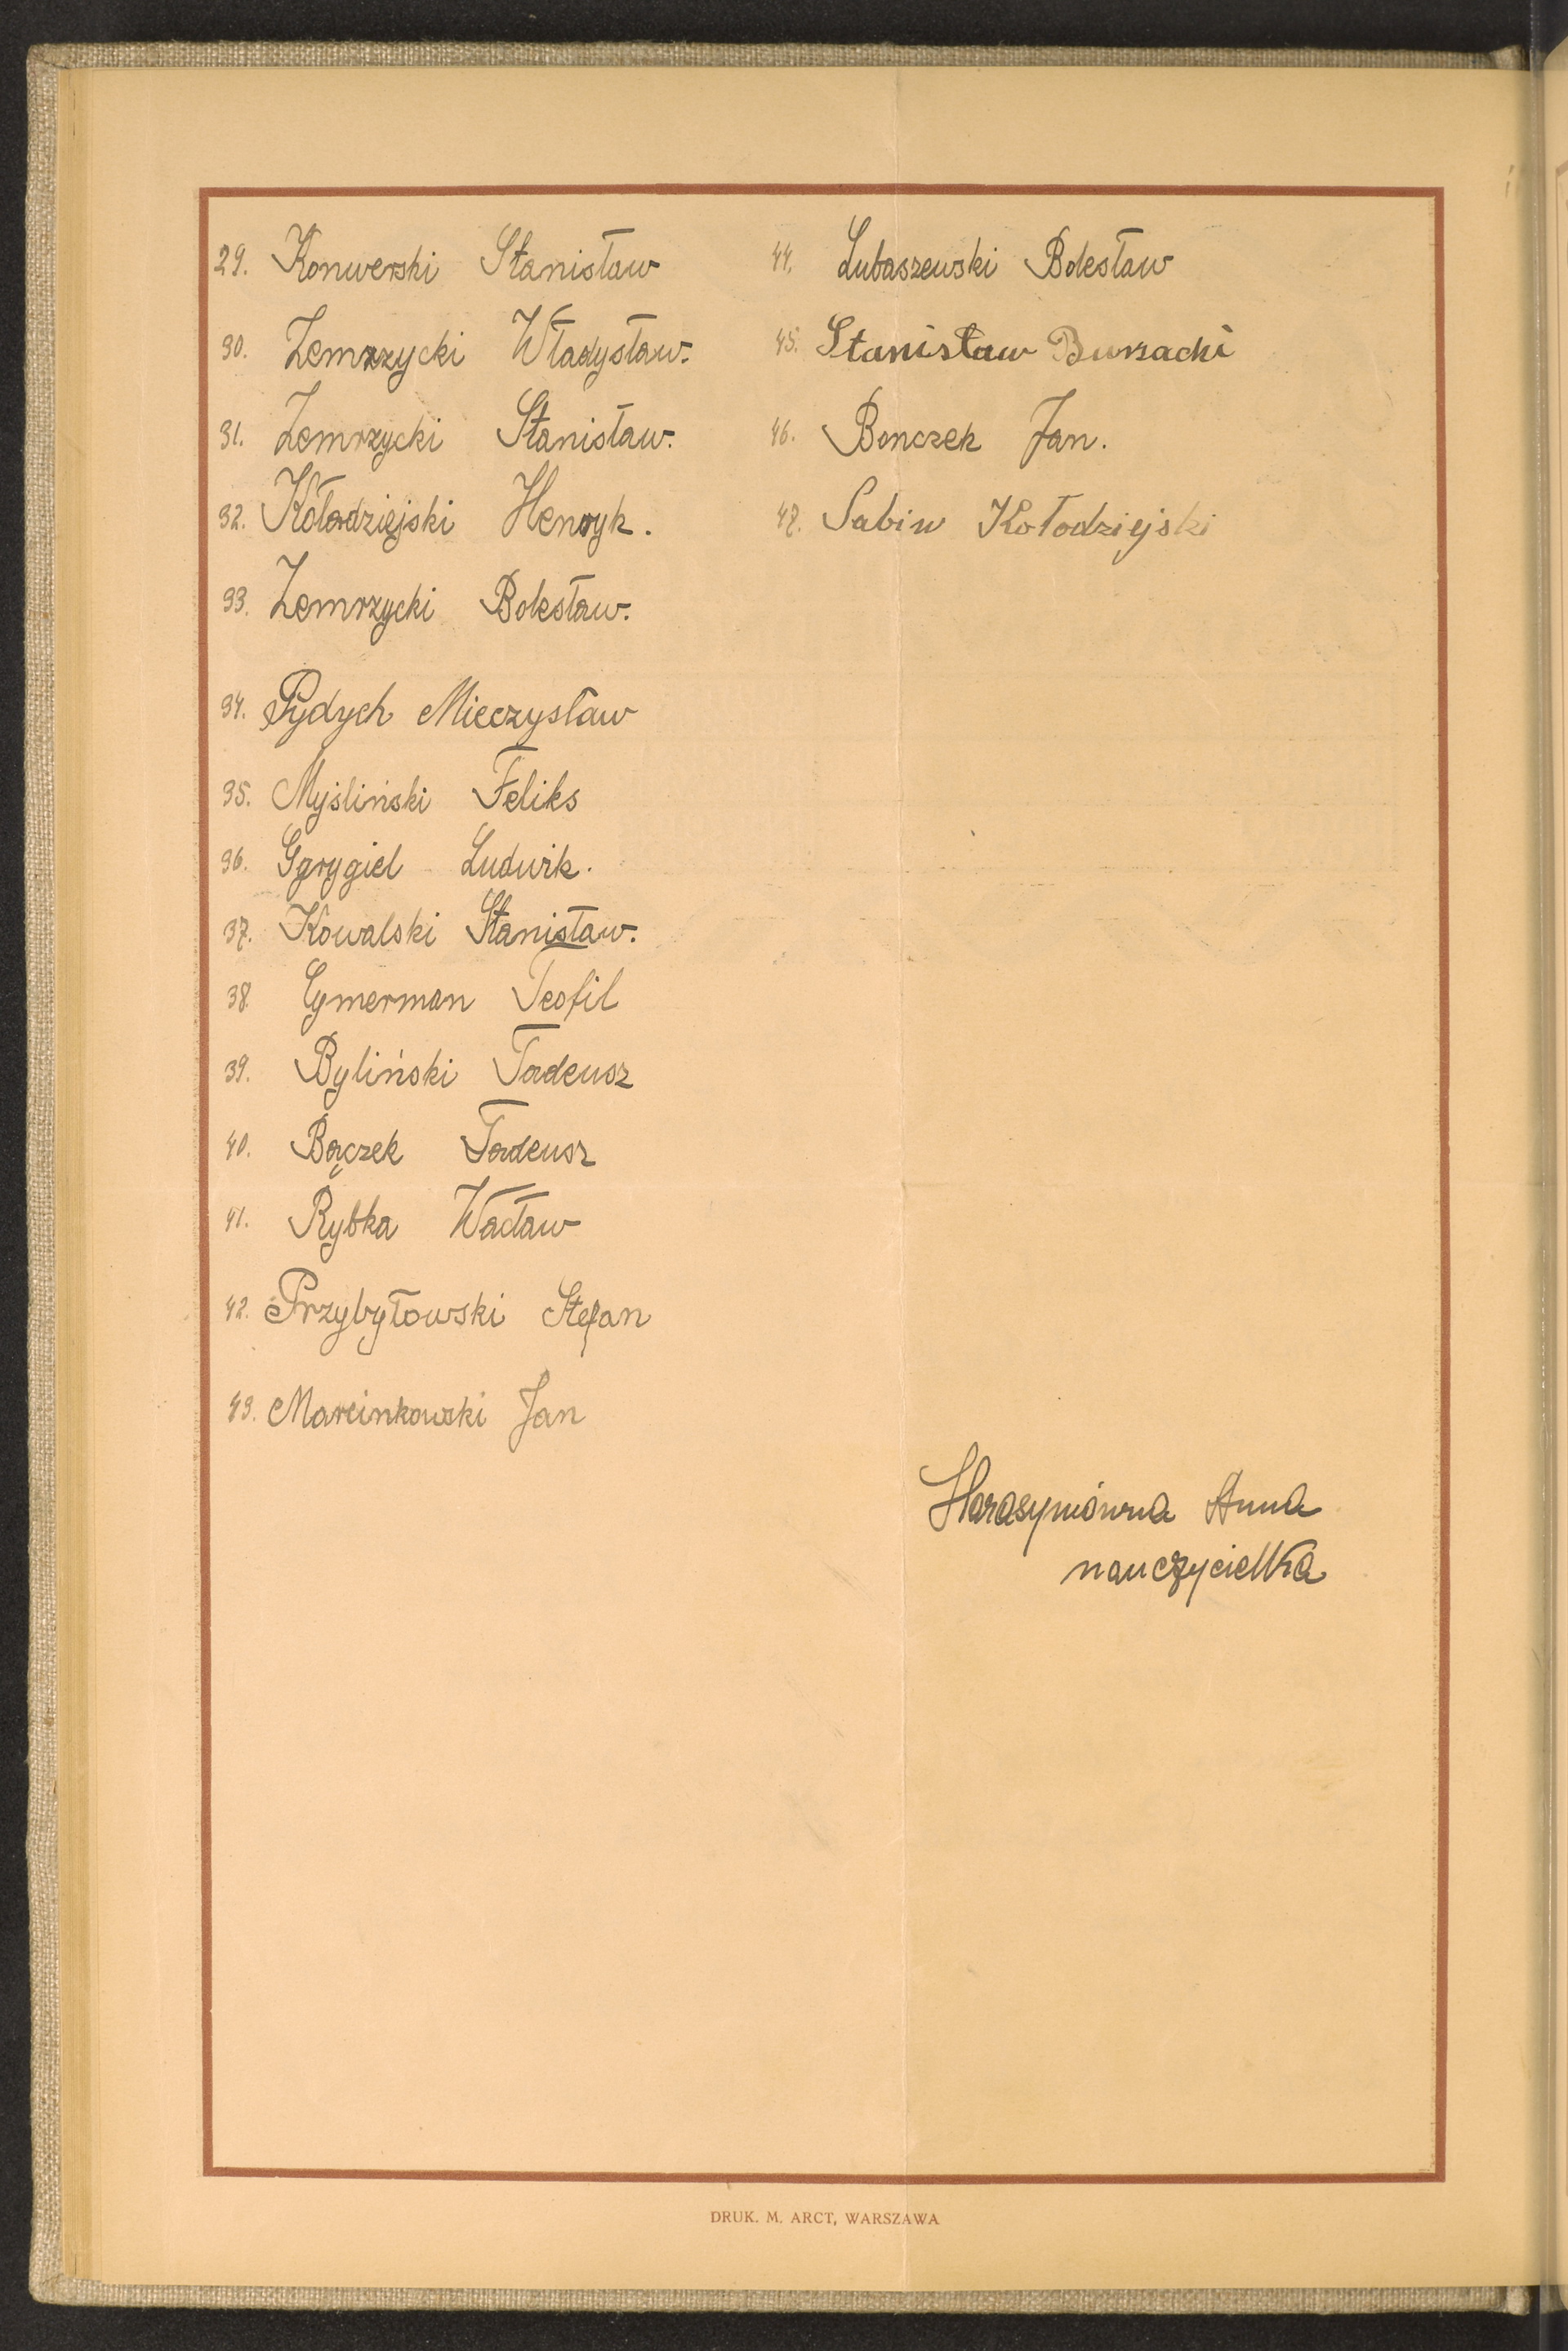 29. Konwerski Stanisław
30. Zemrzycki Władysław.
31. Zemrzycki Stanisław.
32. Kołodziejski Henryk.
33. Zemrzycki Bolesław.
34. Pydych Mieczysław
35. Myśliński Feliks
36. Grygiel Ludwik.
37. Kowalski Stanisław.
38. Cymerman Teofil
39. Byliński Tadeusz
40. Bączek Tadeusz
41. Rybka Wacław
42. Przybyłowski Stefan
43. Marcinkowski Jan
44. Lubaszewski Bolesław
45. Stanisław Bursacki
46. Bonczek Jan.
47. Sabin Kołodziejski
Harasymówna Anna
nauczycielka
DRUK. M. ARCT, WARSZAWA